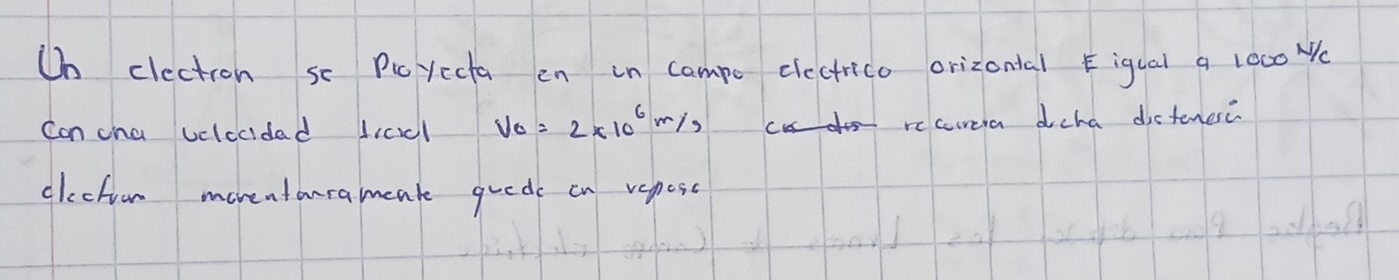 Un electron se Proyecta en un campo electrico orizontal E igual a 1000 N/C
Con una velocidad V0 = 2x10^6 m/s recorrera dicha
electron momentaniamente quede en reposo